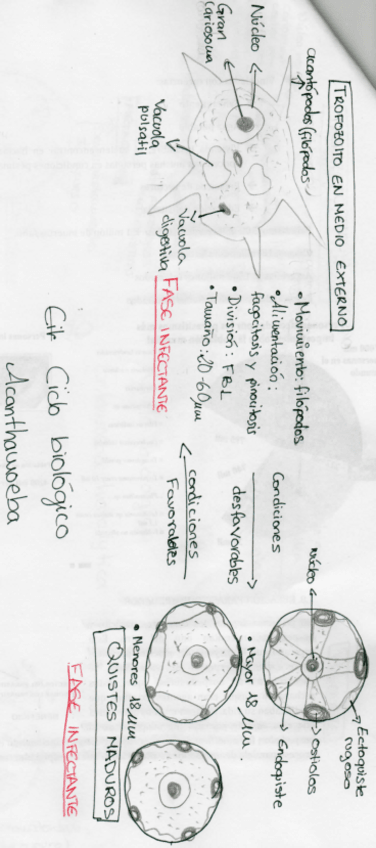 TROFOZOITO EN MEDIO EXTERNO
acantópodos (filópodos
Núcleo
Gran
Cariosoma
Vacuola
pulsátil
Vacuola
digestiva
FASE INFECTANTE
• Movimiento: filópodos
• Alimentación:
fagocitosis y pinocitosis
• División: FBL
• Tamaño: 20-60 µm
Condiciones
desfavorables
condiciones
Favorables
Núcleo
Ectoquiste
rugoso
ostiolos
Endoquiste
• Mayor 18 µm.
• Menores 18 µm
QUISTES MADUROS
FASE INFECTANTE
Ciclo biológico
Acanthamoeba